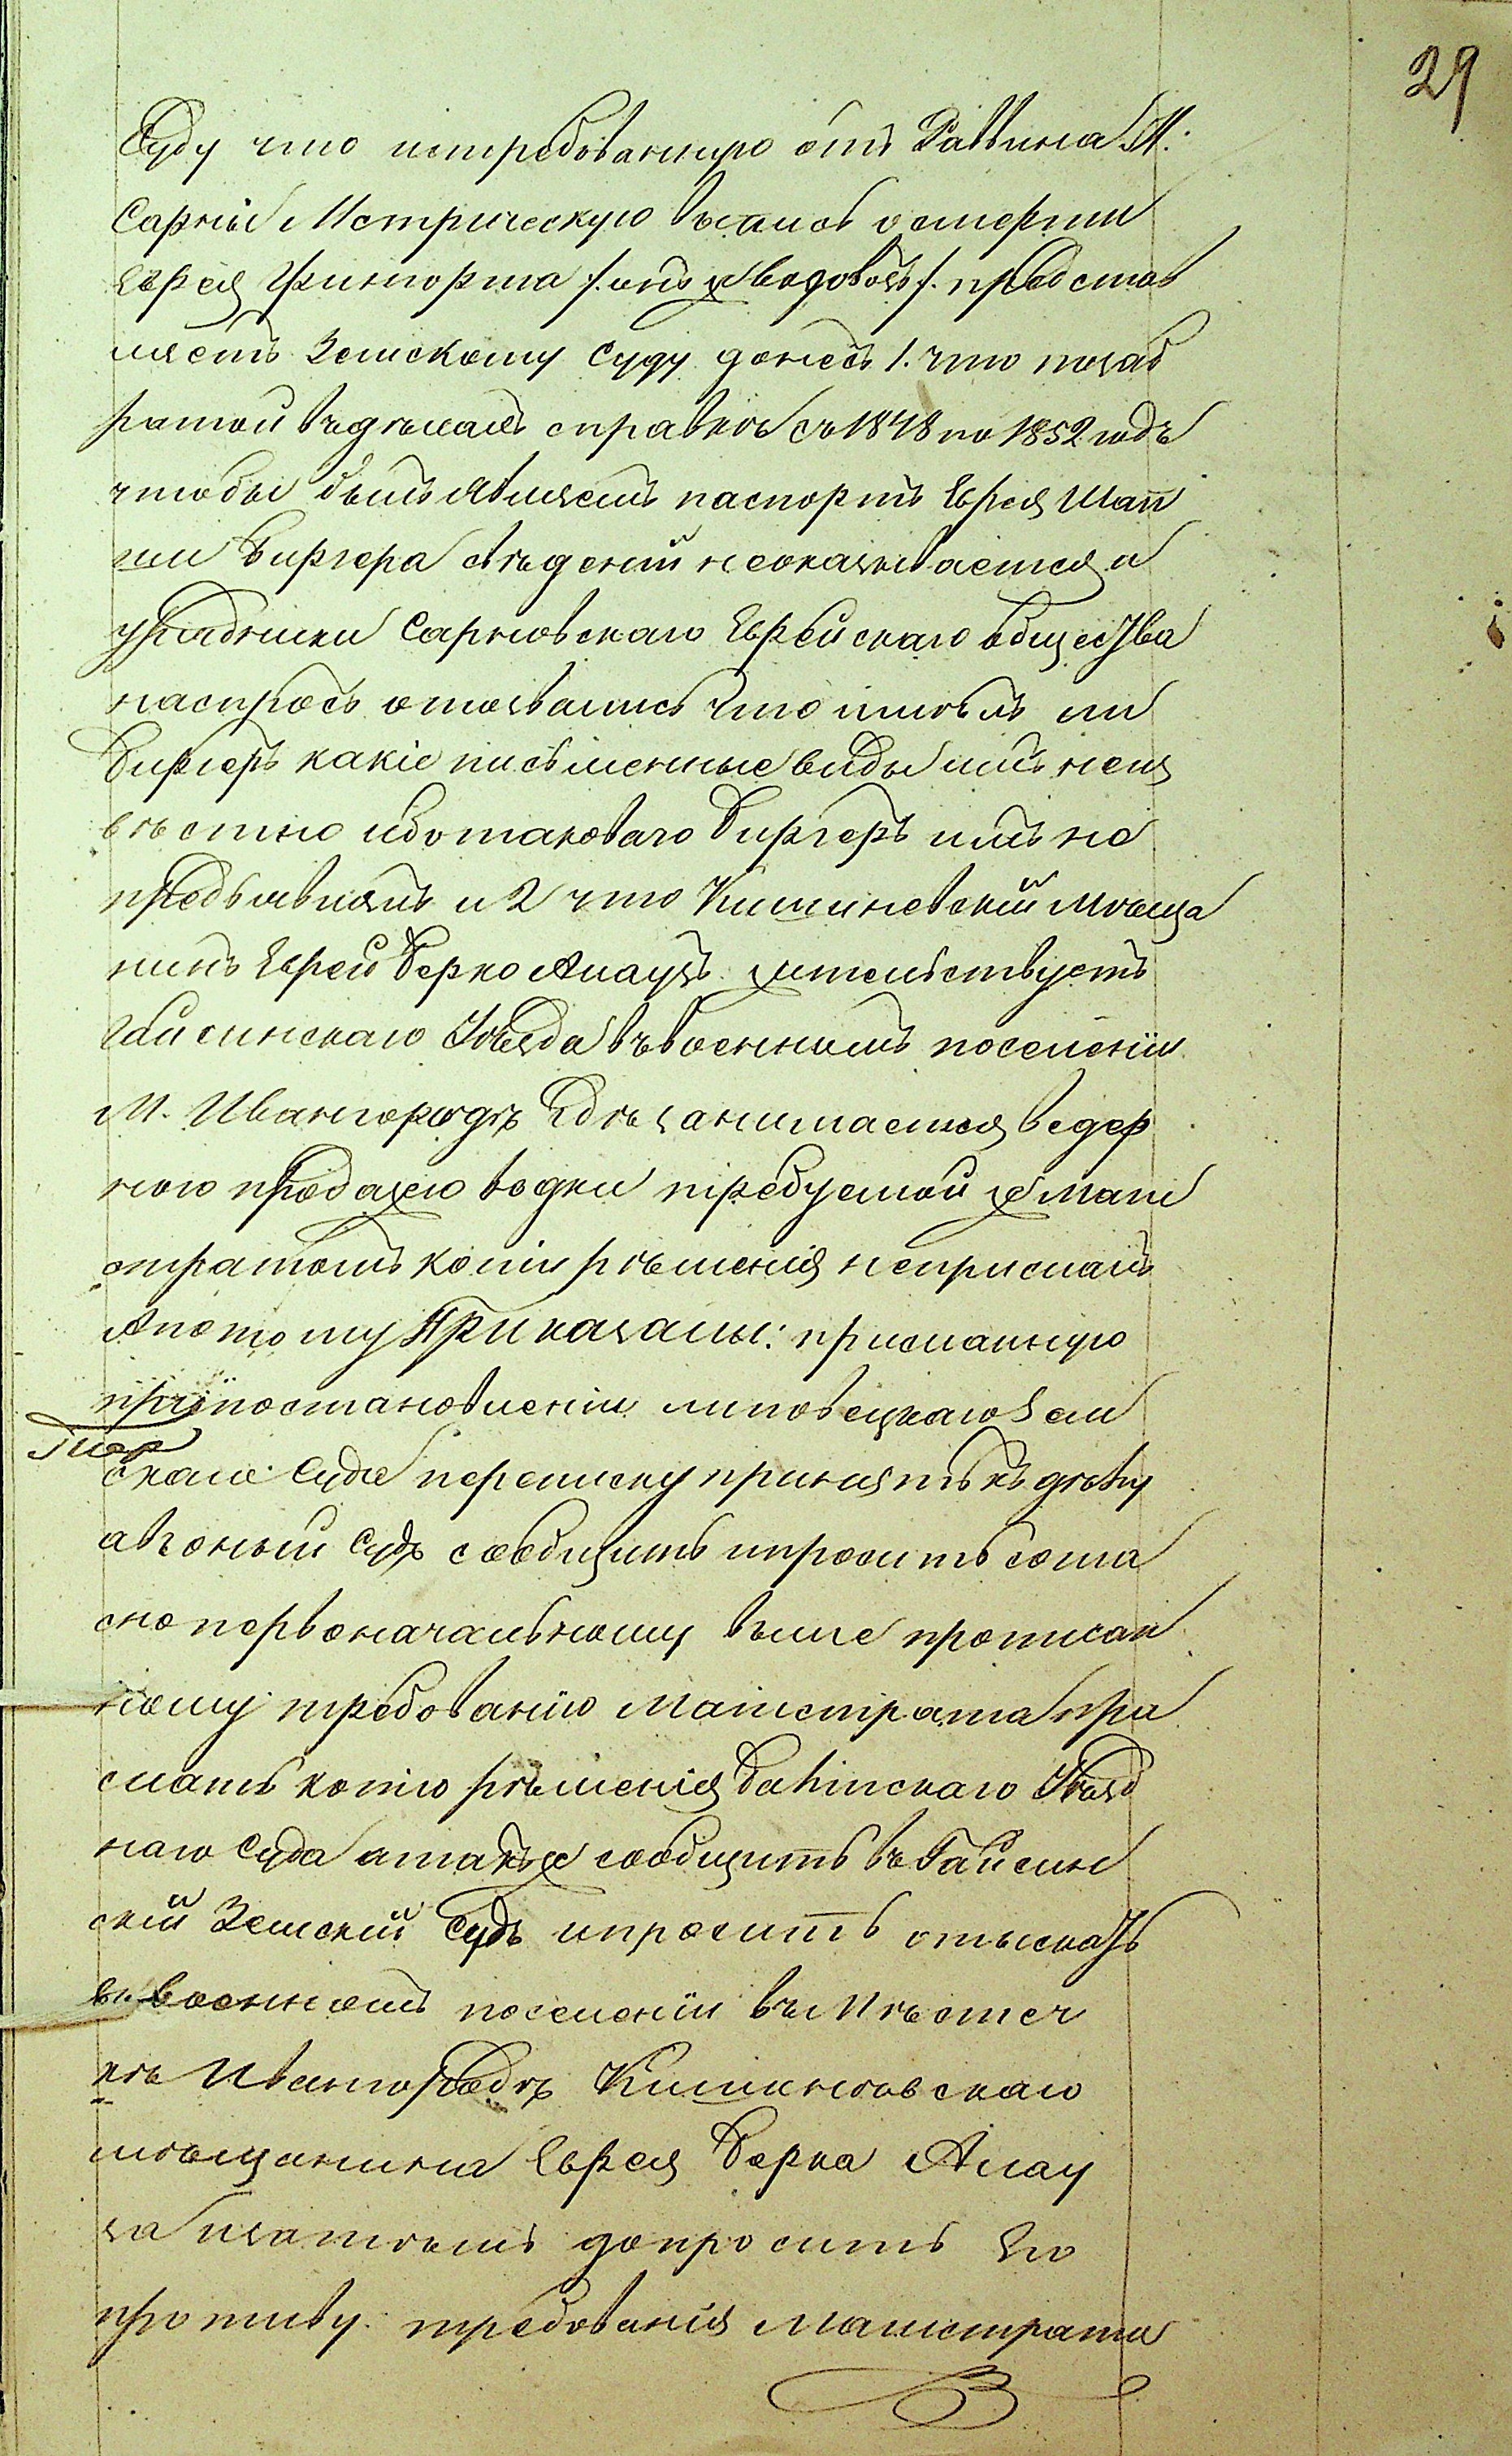 29
Суду что истребованную отъ Раввина М:
Сарніи Метрическую выпись о смерти
Еврея Финторта /: онъ же Вердовъ :/ представ
ляетъ Земскому Суду донесъ 1. что по заб
ратой въдѣлахъ справкѣ съ 1848 по 1852 годъ
чтобы былъ являемъ паспортъ Еврея Шап
ми Биргера свѣденій неоказывается и
урядники Сарновскаго Еврейскаго общества
наспросъ отозвались что имѣлъ ли
Биргеръ какіе письменные виды имъ неиз
вѣстно ибо таковаго Биргеръ имъ не
предъявлялъ и 2 что Кишиневскій мѣща
нинъ Еврей Берко Апаузъ жительствуетъ
Гайсинскаго Уѣзда въ военномъ поселеніи
М. Ивангородѣ гдѣ занимается ведер
ною продажею водки требуемой же маги
стратомъ копіи рѣшенія неприслалъ
А потому Приказали: присланную
при постановленіи Липовецкаго Зем
скаго Суда переписку принять къ дѣлу
а въ оный Судъ сообщить и просить согла
сно первоначальному выше прописан
ному требованію Магистрата при
слать копію рѣшенія Балтскаго Уѣзд
наго Суда а также сообщить въ Гайсин
скій Земскій Судъ и просить отыскать
въ военномъ поселеніи въ Мѣстеч
кѣ Ивангородѣ Кишиневскаго
мѣщанина Еврея Берка Апау
за и затѣмъ допросить его
противу требованія Магистрата